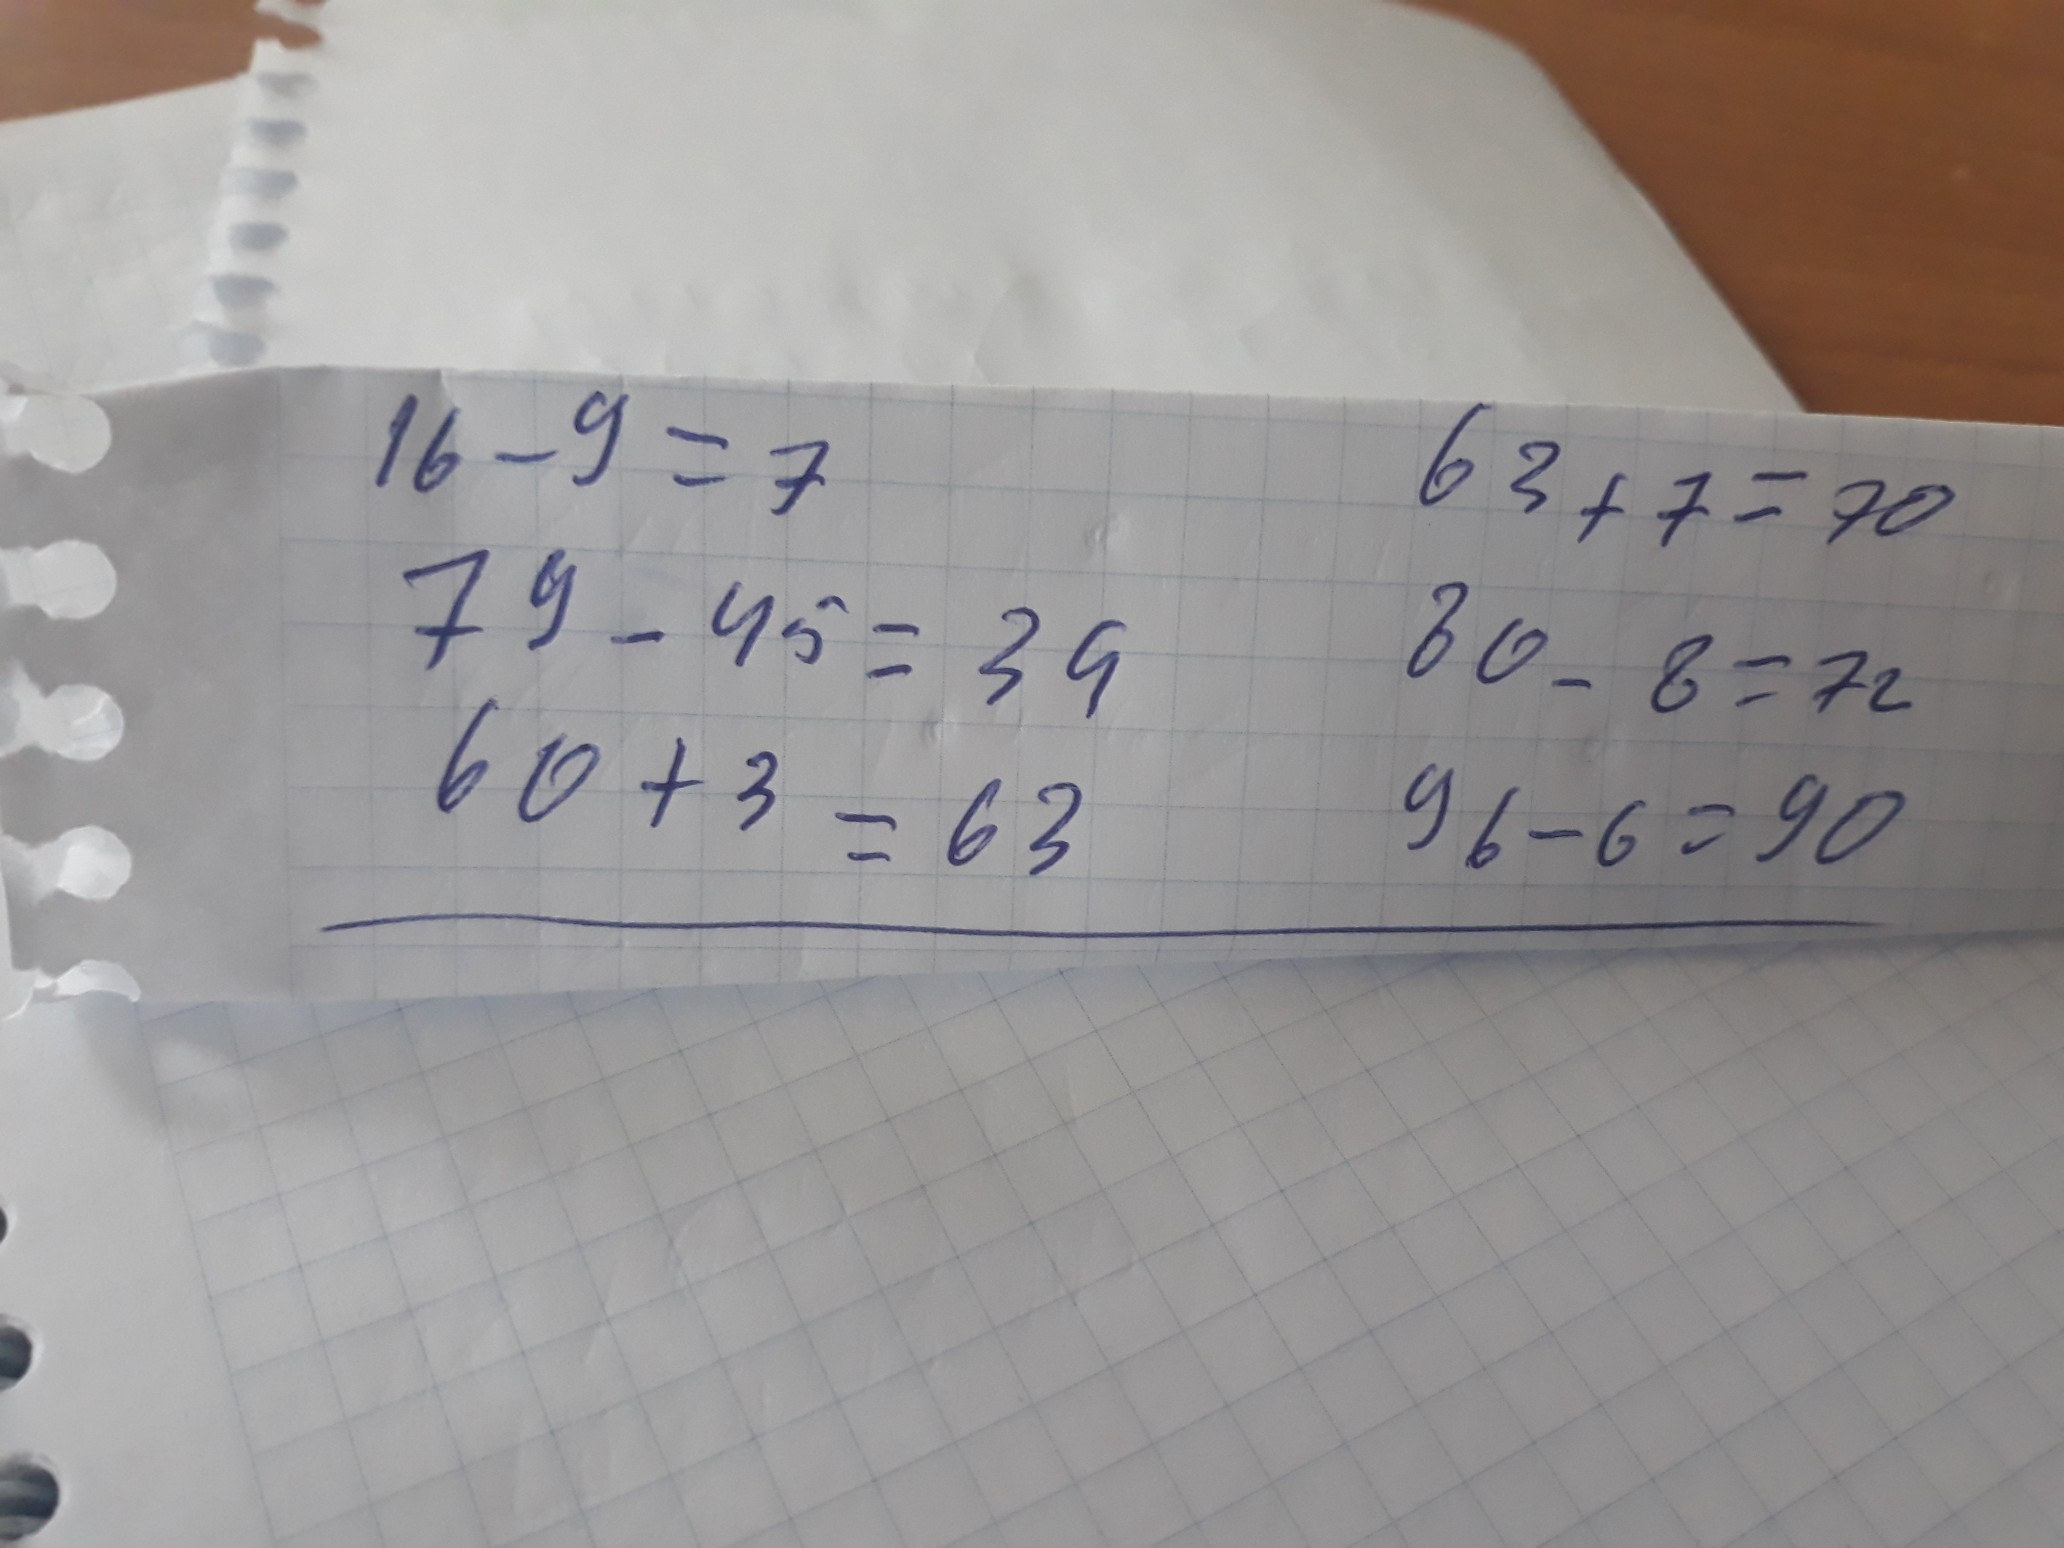 16 - 9 = 7
79 - 45 = 34
60 + 3 = 63
63 + 7 = 70
80 - 8 = 72
96 - 6 = 90